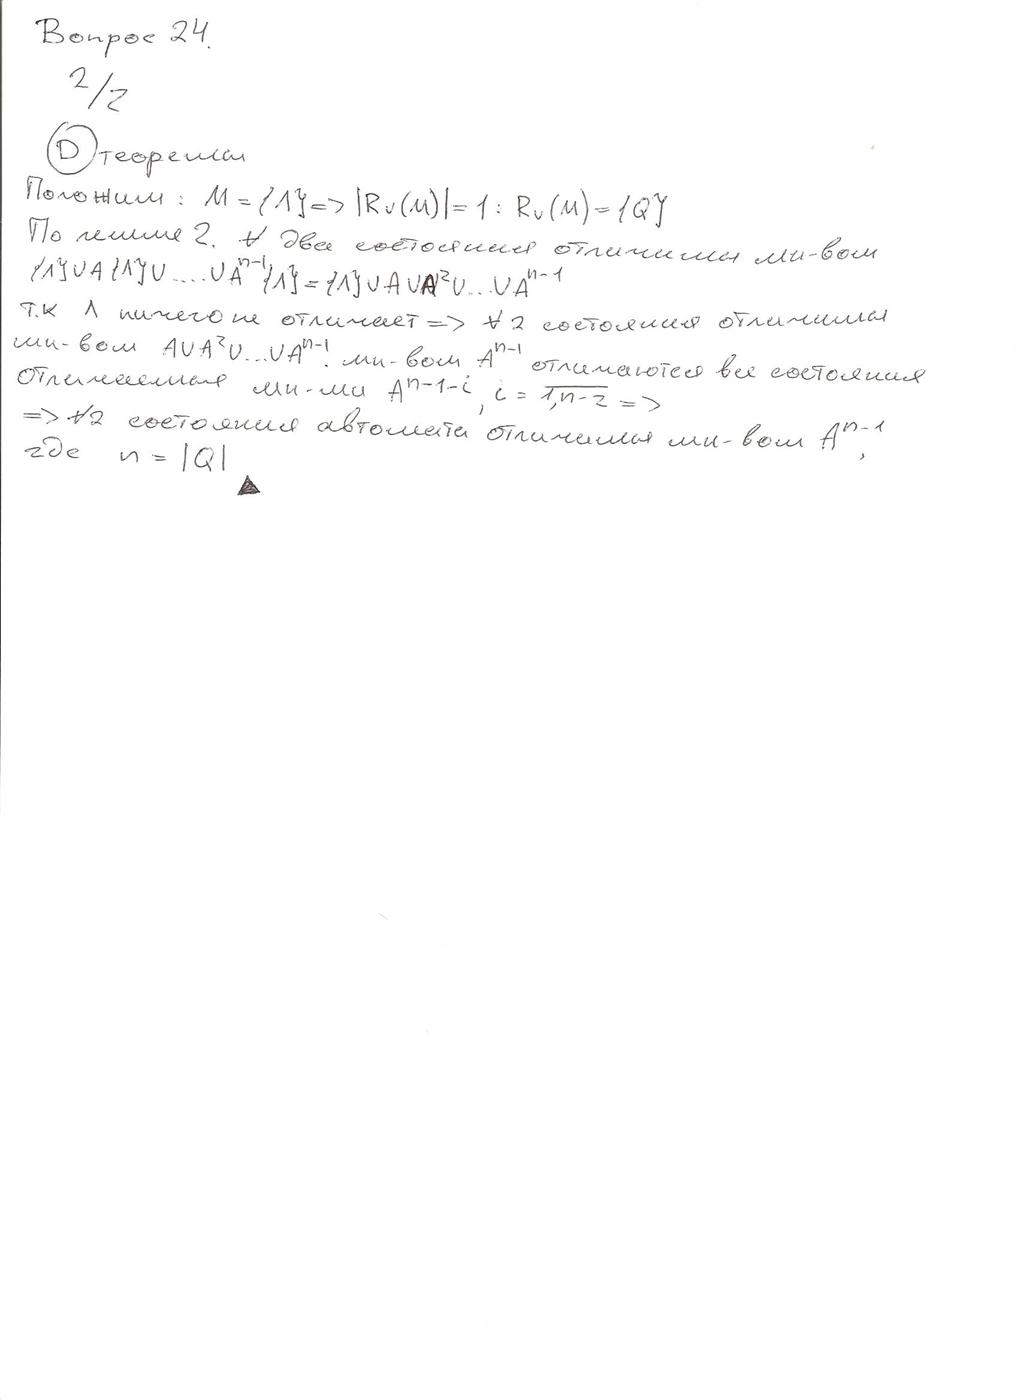 Вопрос 24.
2/2
Ⓓ теоремы
Положим: M = {Λ} => |Rv(M)| = 1 : Rv(M) = {Q}
По лемме 2. ∀ два состояния отличимы мн-вом
{Λ}∪A{Λ}∪....∪Aⁿ⁻¹{Λ} = {Λ}∪A∪A²∪...∪Aⁿ⁻¹
т.к Λ ничего не отличает => ∀ 2 состояния отличимы
мн-вом A∪A²∪...∪Aⁿ⁻¹. мн-вом Aⁿ⁻¹ отличаются все состояния
отличаемые мн-ми Aⁿ⁻¹⁻ⁱ, i = 1,n-2 =>
=> ∀2 состояния автомата отличимы мн-вом Aⁿ⁻¹,
где n = |Q|
▲